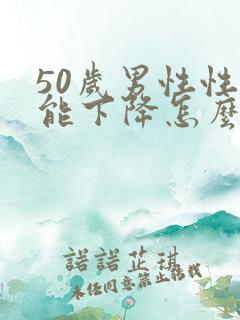 50歲男性性
能下降怎麼
諾諾芷琪
未任同意禁止轉載